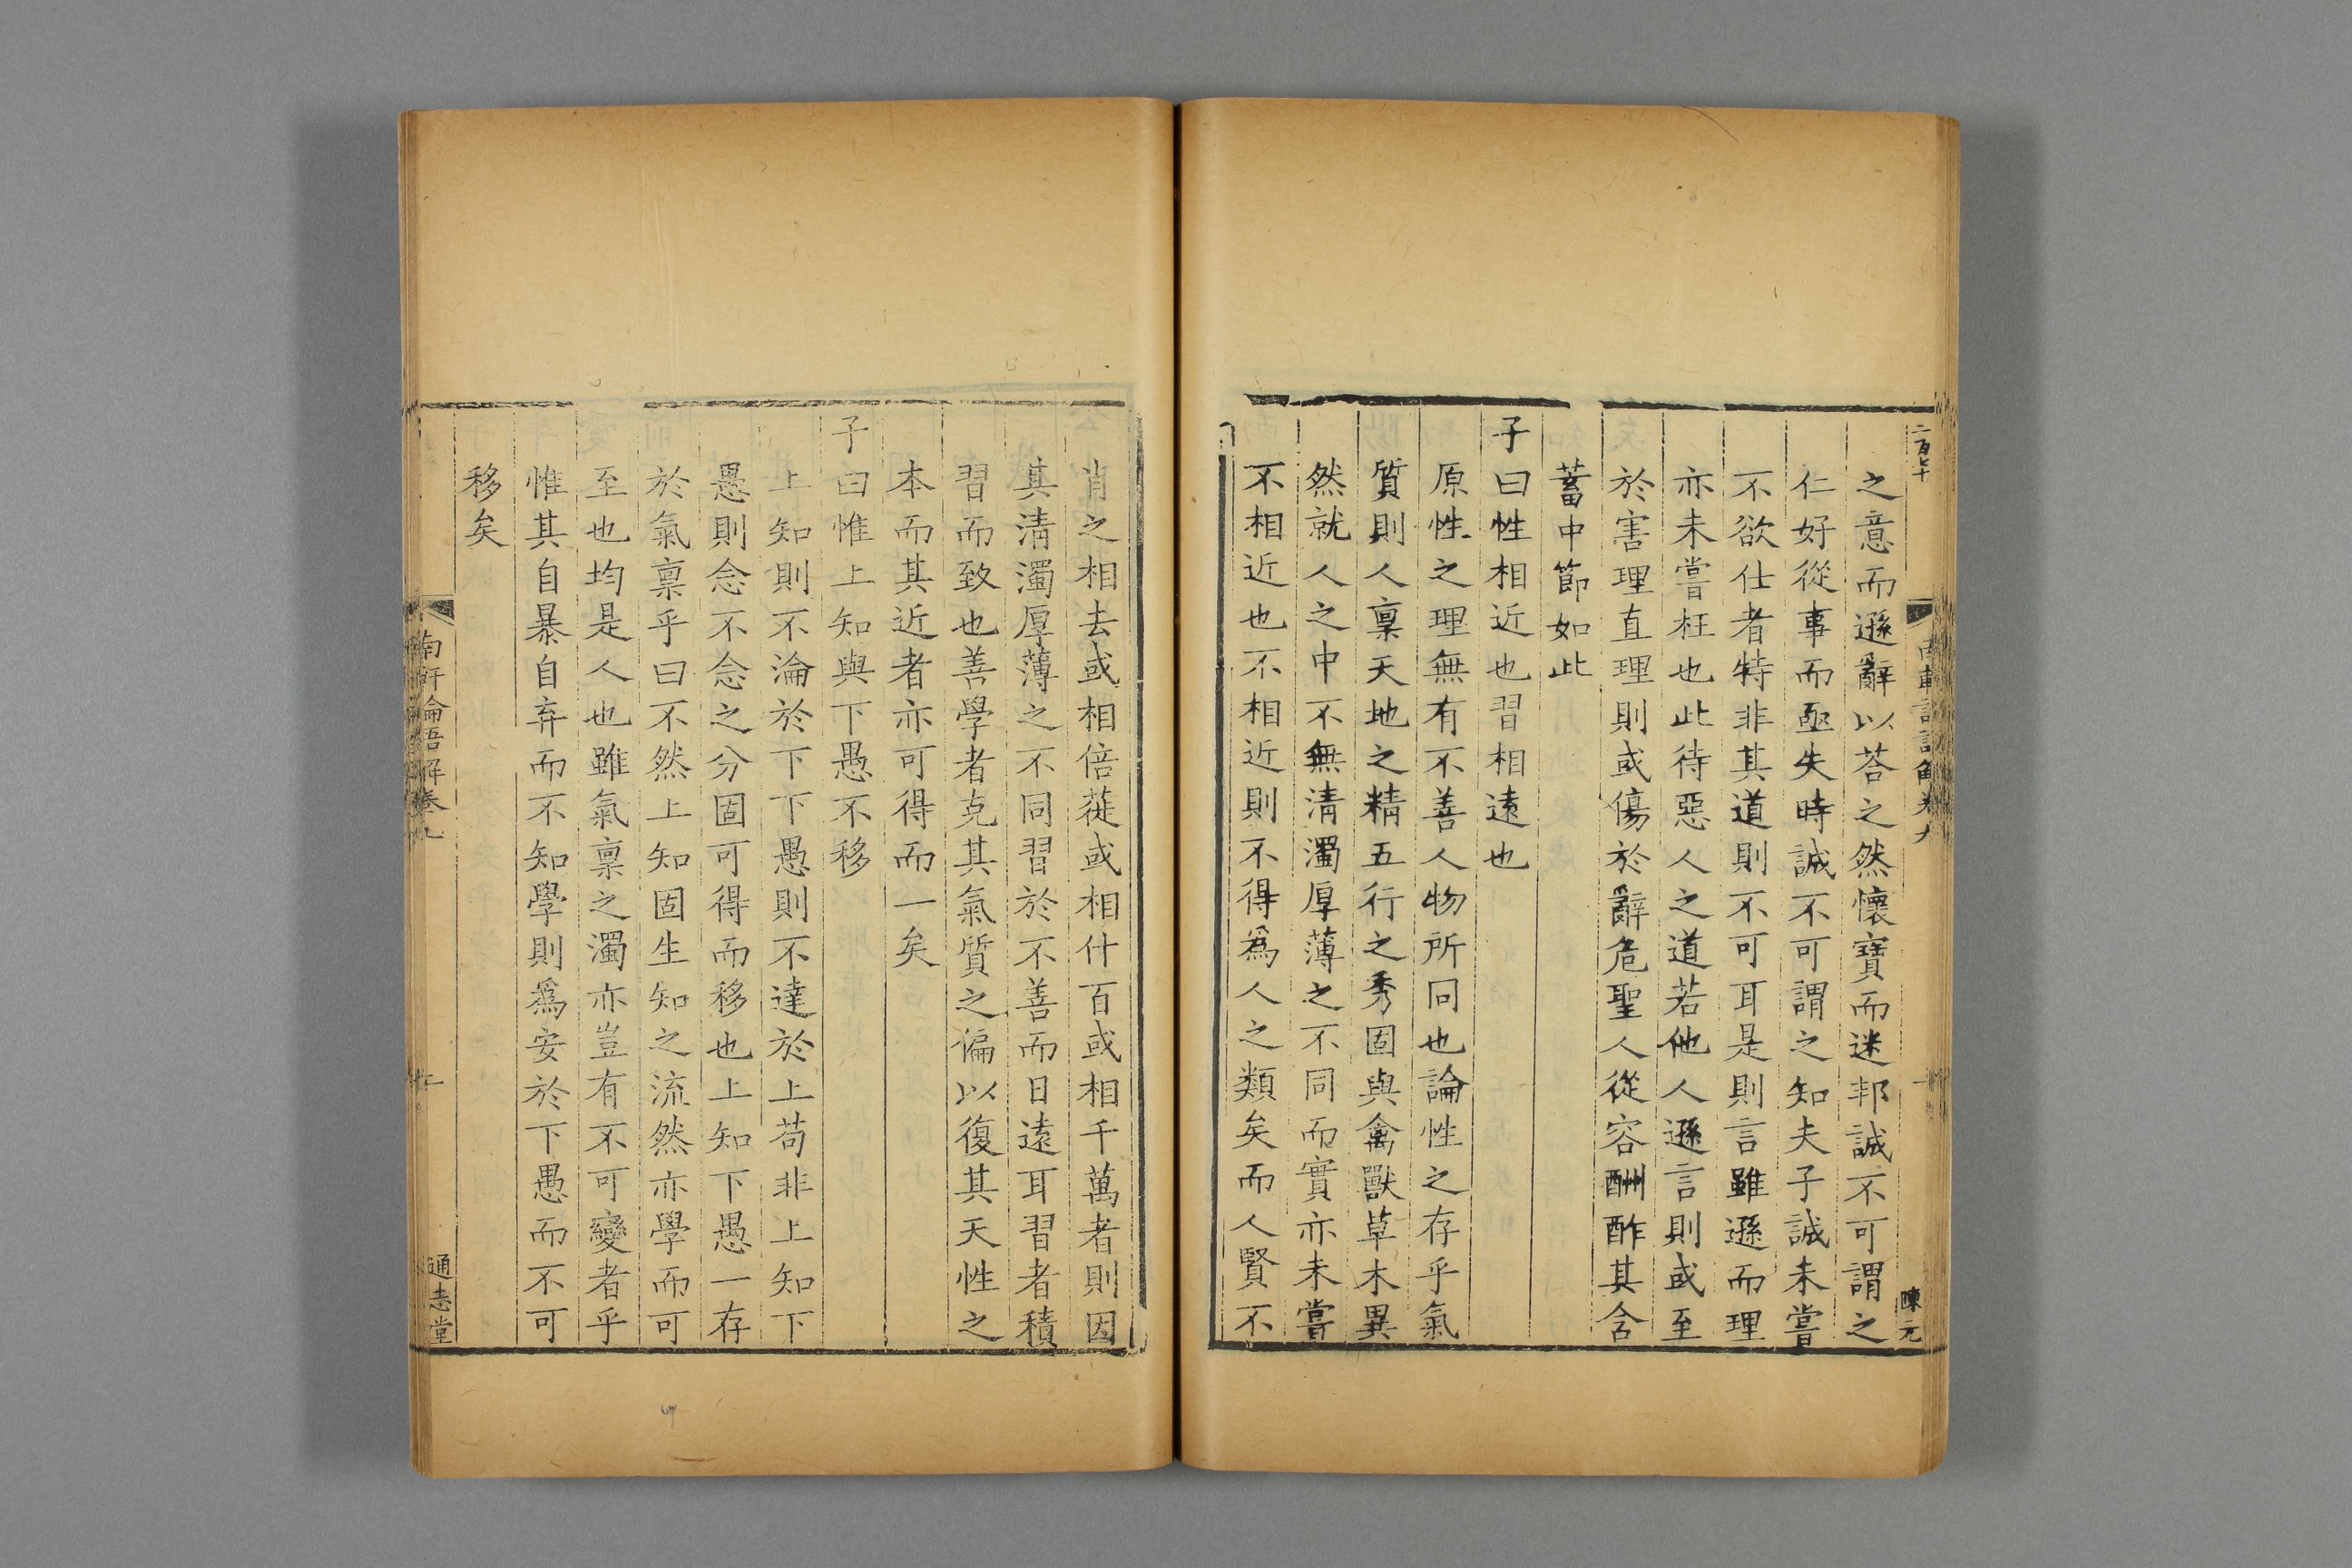 二百七十
之意而遜辭以荅之然懷寶而迷邦誠不可謂之
仁好從事而亟失時誠不可謂之知夫子誠未嘗
不欲仕者特非其道則不可耳是則言雖遜而理
亦未嘗枉也此待惡人之道若他人遜言則或至
於害理直理則或傷於辭危聖人從容酬酢其含
蓄中節如此
子曰性相近也習相遠也
原性之理無有不善人物所同也論性之存乎氣
質則人稟天地之精五行之秀固與禽獸草木異
然就人之中不無清濁厚薄之不同而實亦未嘗
不相近也不相近則不得爲人之類矣而人賢不
陳元
肖之相去或相倍蓰或相什百或相千萬者則因
其清濁厚薄之不同習於不善而日遠耳習者積
習而致也善學者克其氣質之偏以復其天性之
本而其近者亦可得而一矣
子曰惟上知與下愚不移
上知則不淪於下下愚則不達於上苟非上知下
愚則念不念之分固可得而移也上知下愚一存
於氣稟乎曰不然上知固生知之流然亦學而可
至也均是人也雖氣稟之濁亦豈有不可變者乎
惟其自暴自弃而不知學則爲安於下愚而不可
移矣
南軒論語解卷九
通志堂